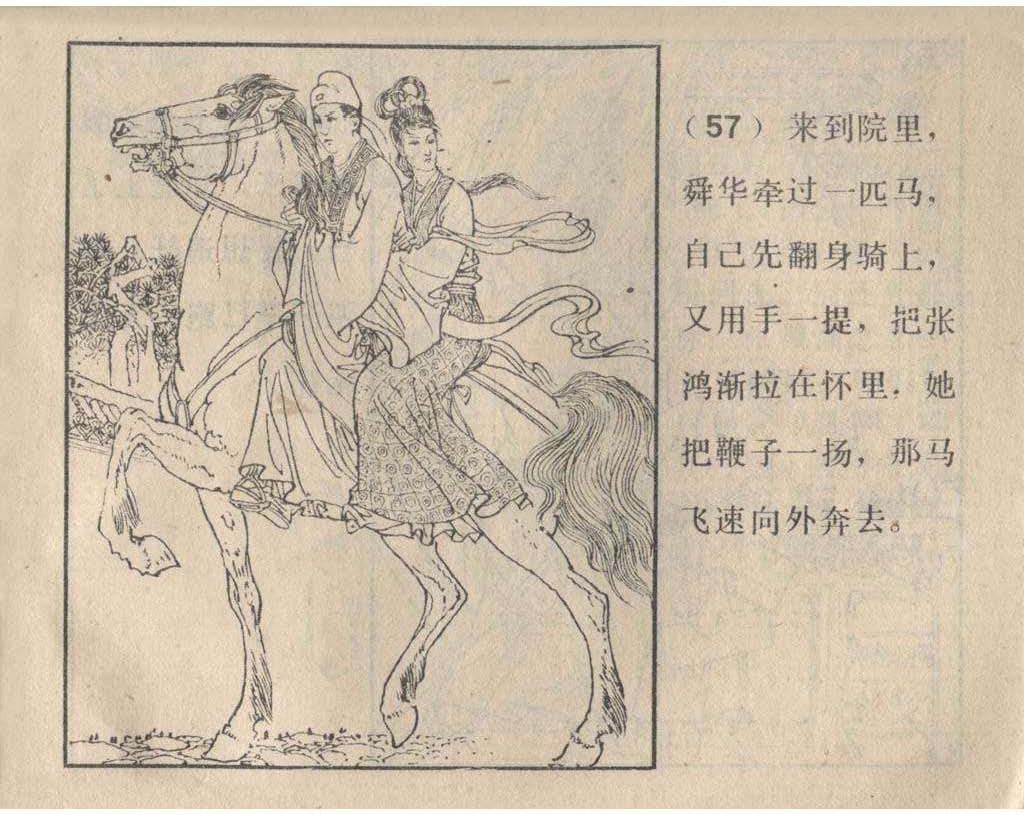 （57）来到院里，
舜华牵过一匹马，
自己先翻身骑上，
又用手一提，把张
鸿渐拉在怀里．她
把鞭子一扬，那马
飞速向外奔去。